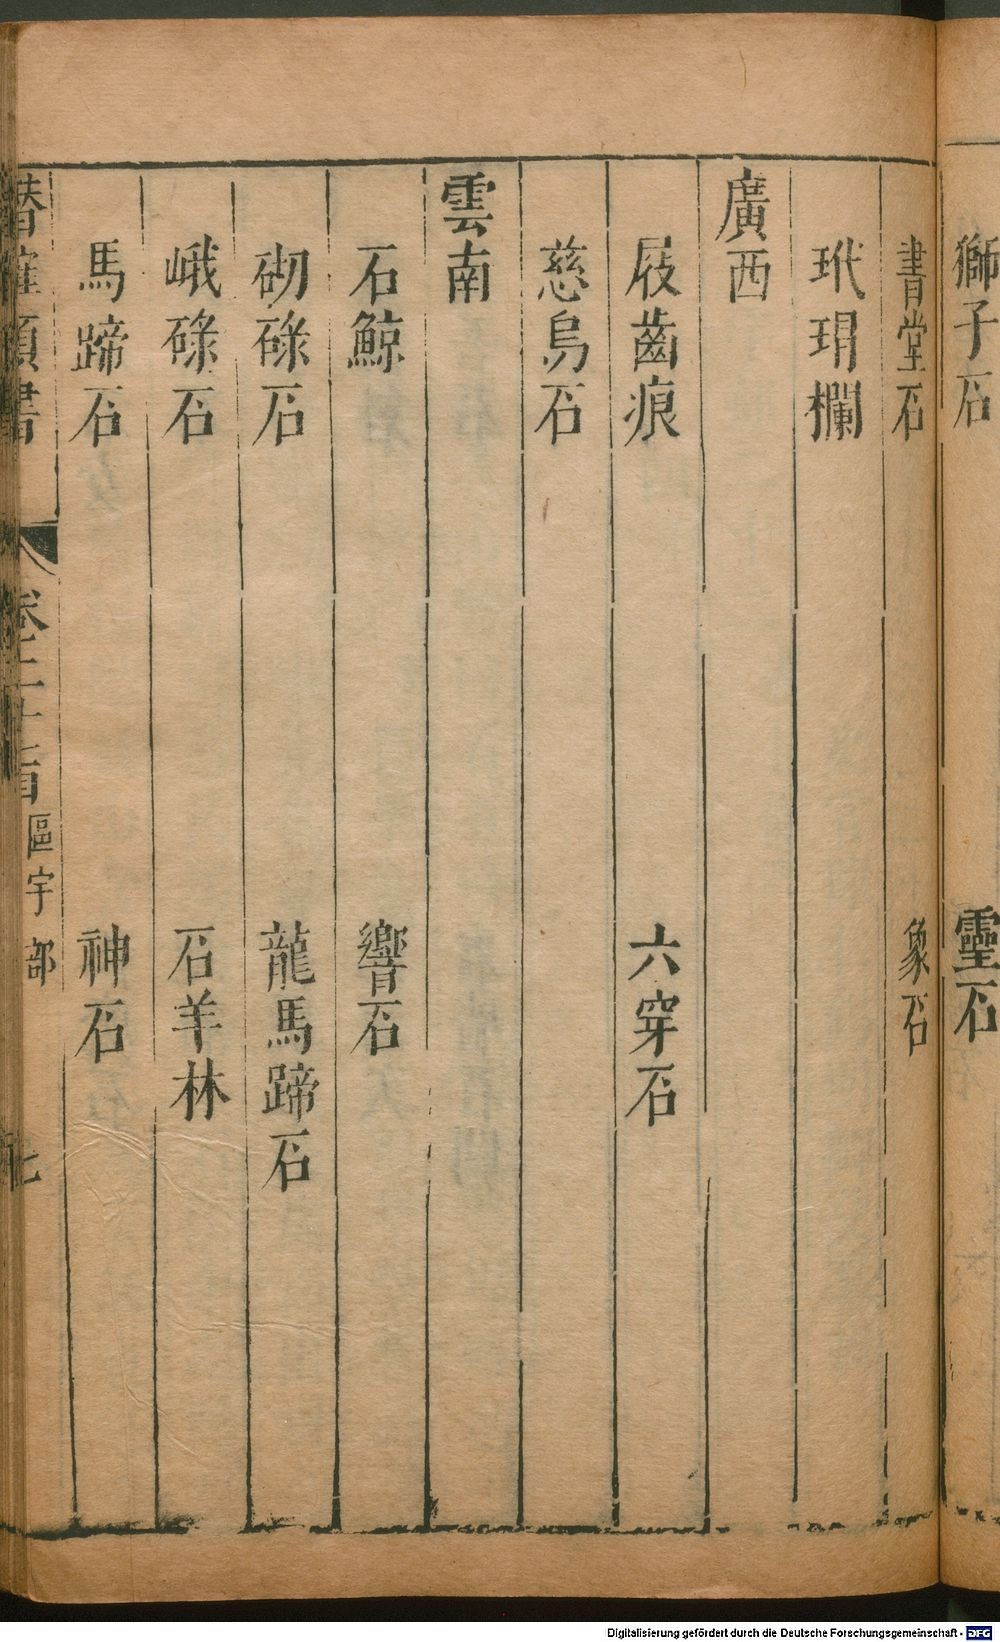 獅子石　靈石
書堂石　象石
玳瑁欄
廣西
屐齒痕　六穿石
慈烏石
雲南
石鯨　響石
砌碌石　龍馬蹄石
峨碌石　石羊林
馬蹄石　神石
潛確類書　卷二十七目　區宇部　七
Digitalisierung gefördert durch die Deutsche Forschungsgemeinschaft - DFG